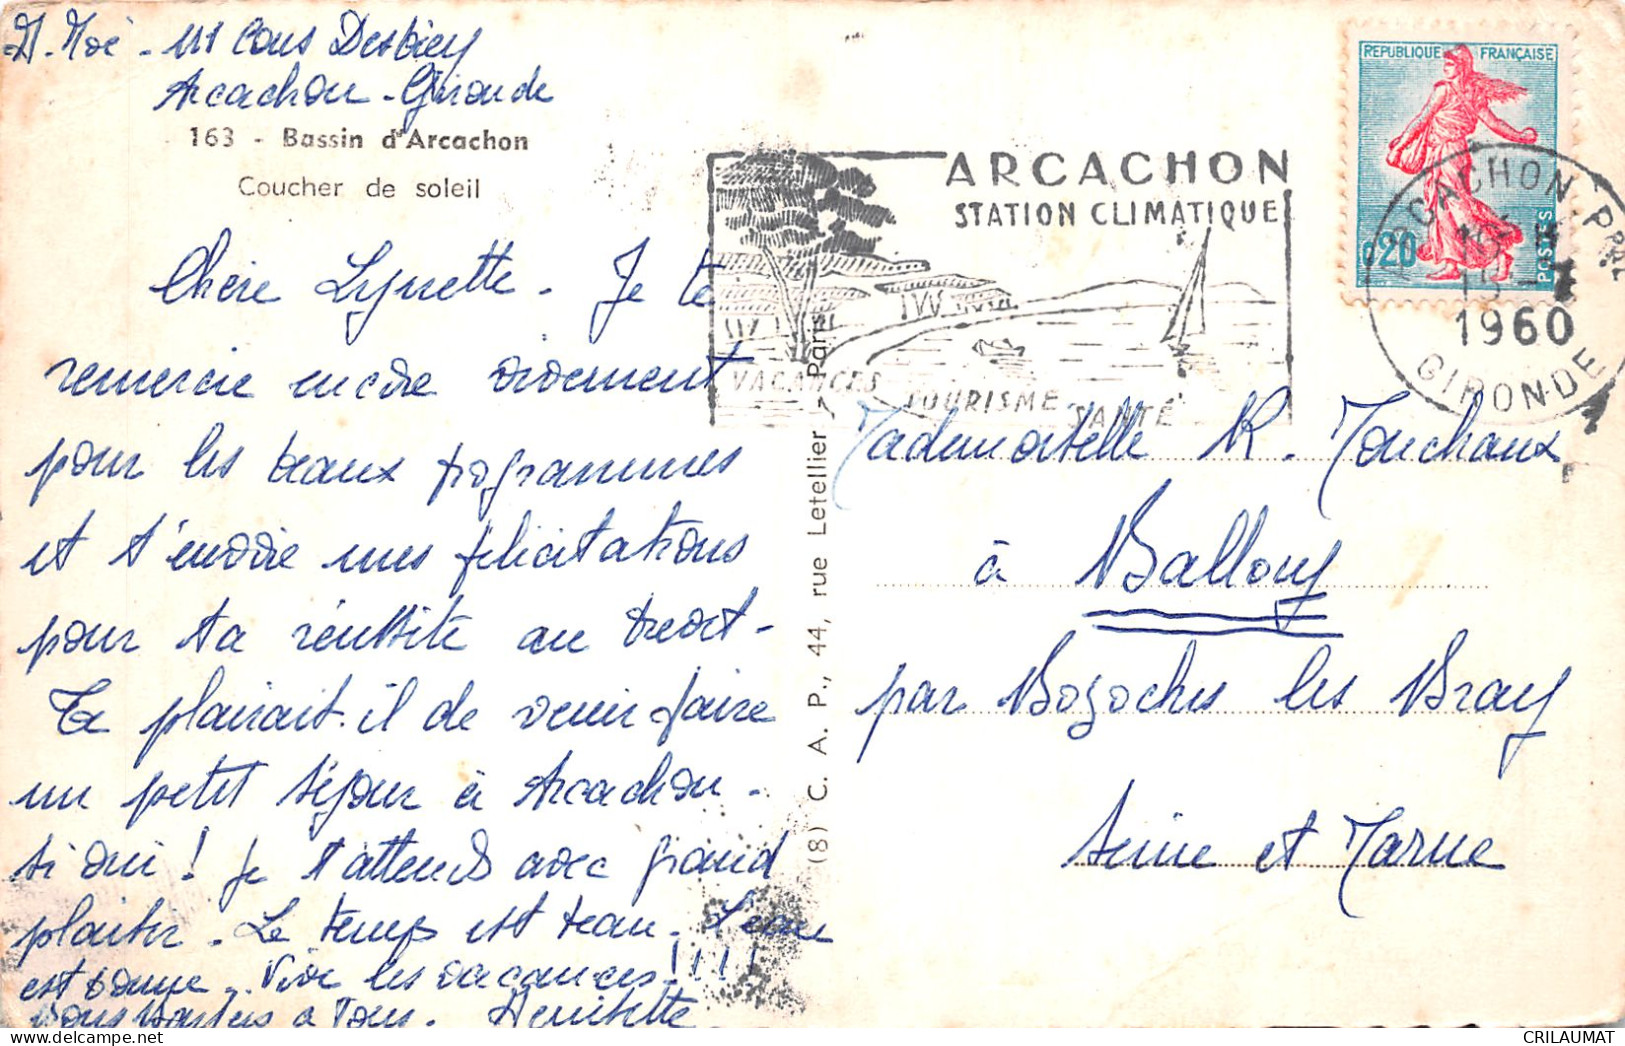 M. Noé - 111 Cours Desbiey
Arcachon - Gironde
163 - Bassin d'Arcachon
Coucher de soleil
Chère Lynette. Je te
remercie encore vivement
pour les beaux programmes
et t'envoie mes félicitations
pour ta réussite au brevet -
Te plairait-il de venir faire
un petit séjour à Arcachon -
si oui ! je t'attends avec grand
plaisir. Le temps est beau. L'eau
est bonne. Vive les vacances !!!!
Bons baisers à Tous.
(8) C. A. P., 44, rue Letellier - Paris
ARCACHON
STATION CLIMATIQUE
VACANCES
TOURISME
SANTÉ
REPUBLIQUE FRANÇAISE
0,20
POSTES
ARCACHON PPAL
1960
GIRONDE
Mademoiselle R. Mouchaux
à Balloy
par Bazoches les Bray
Seine et Marne
CRILAUMAT